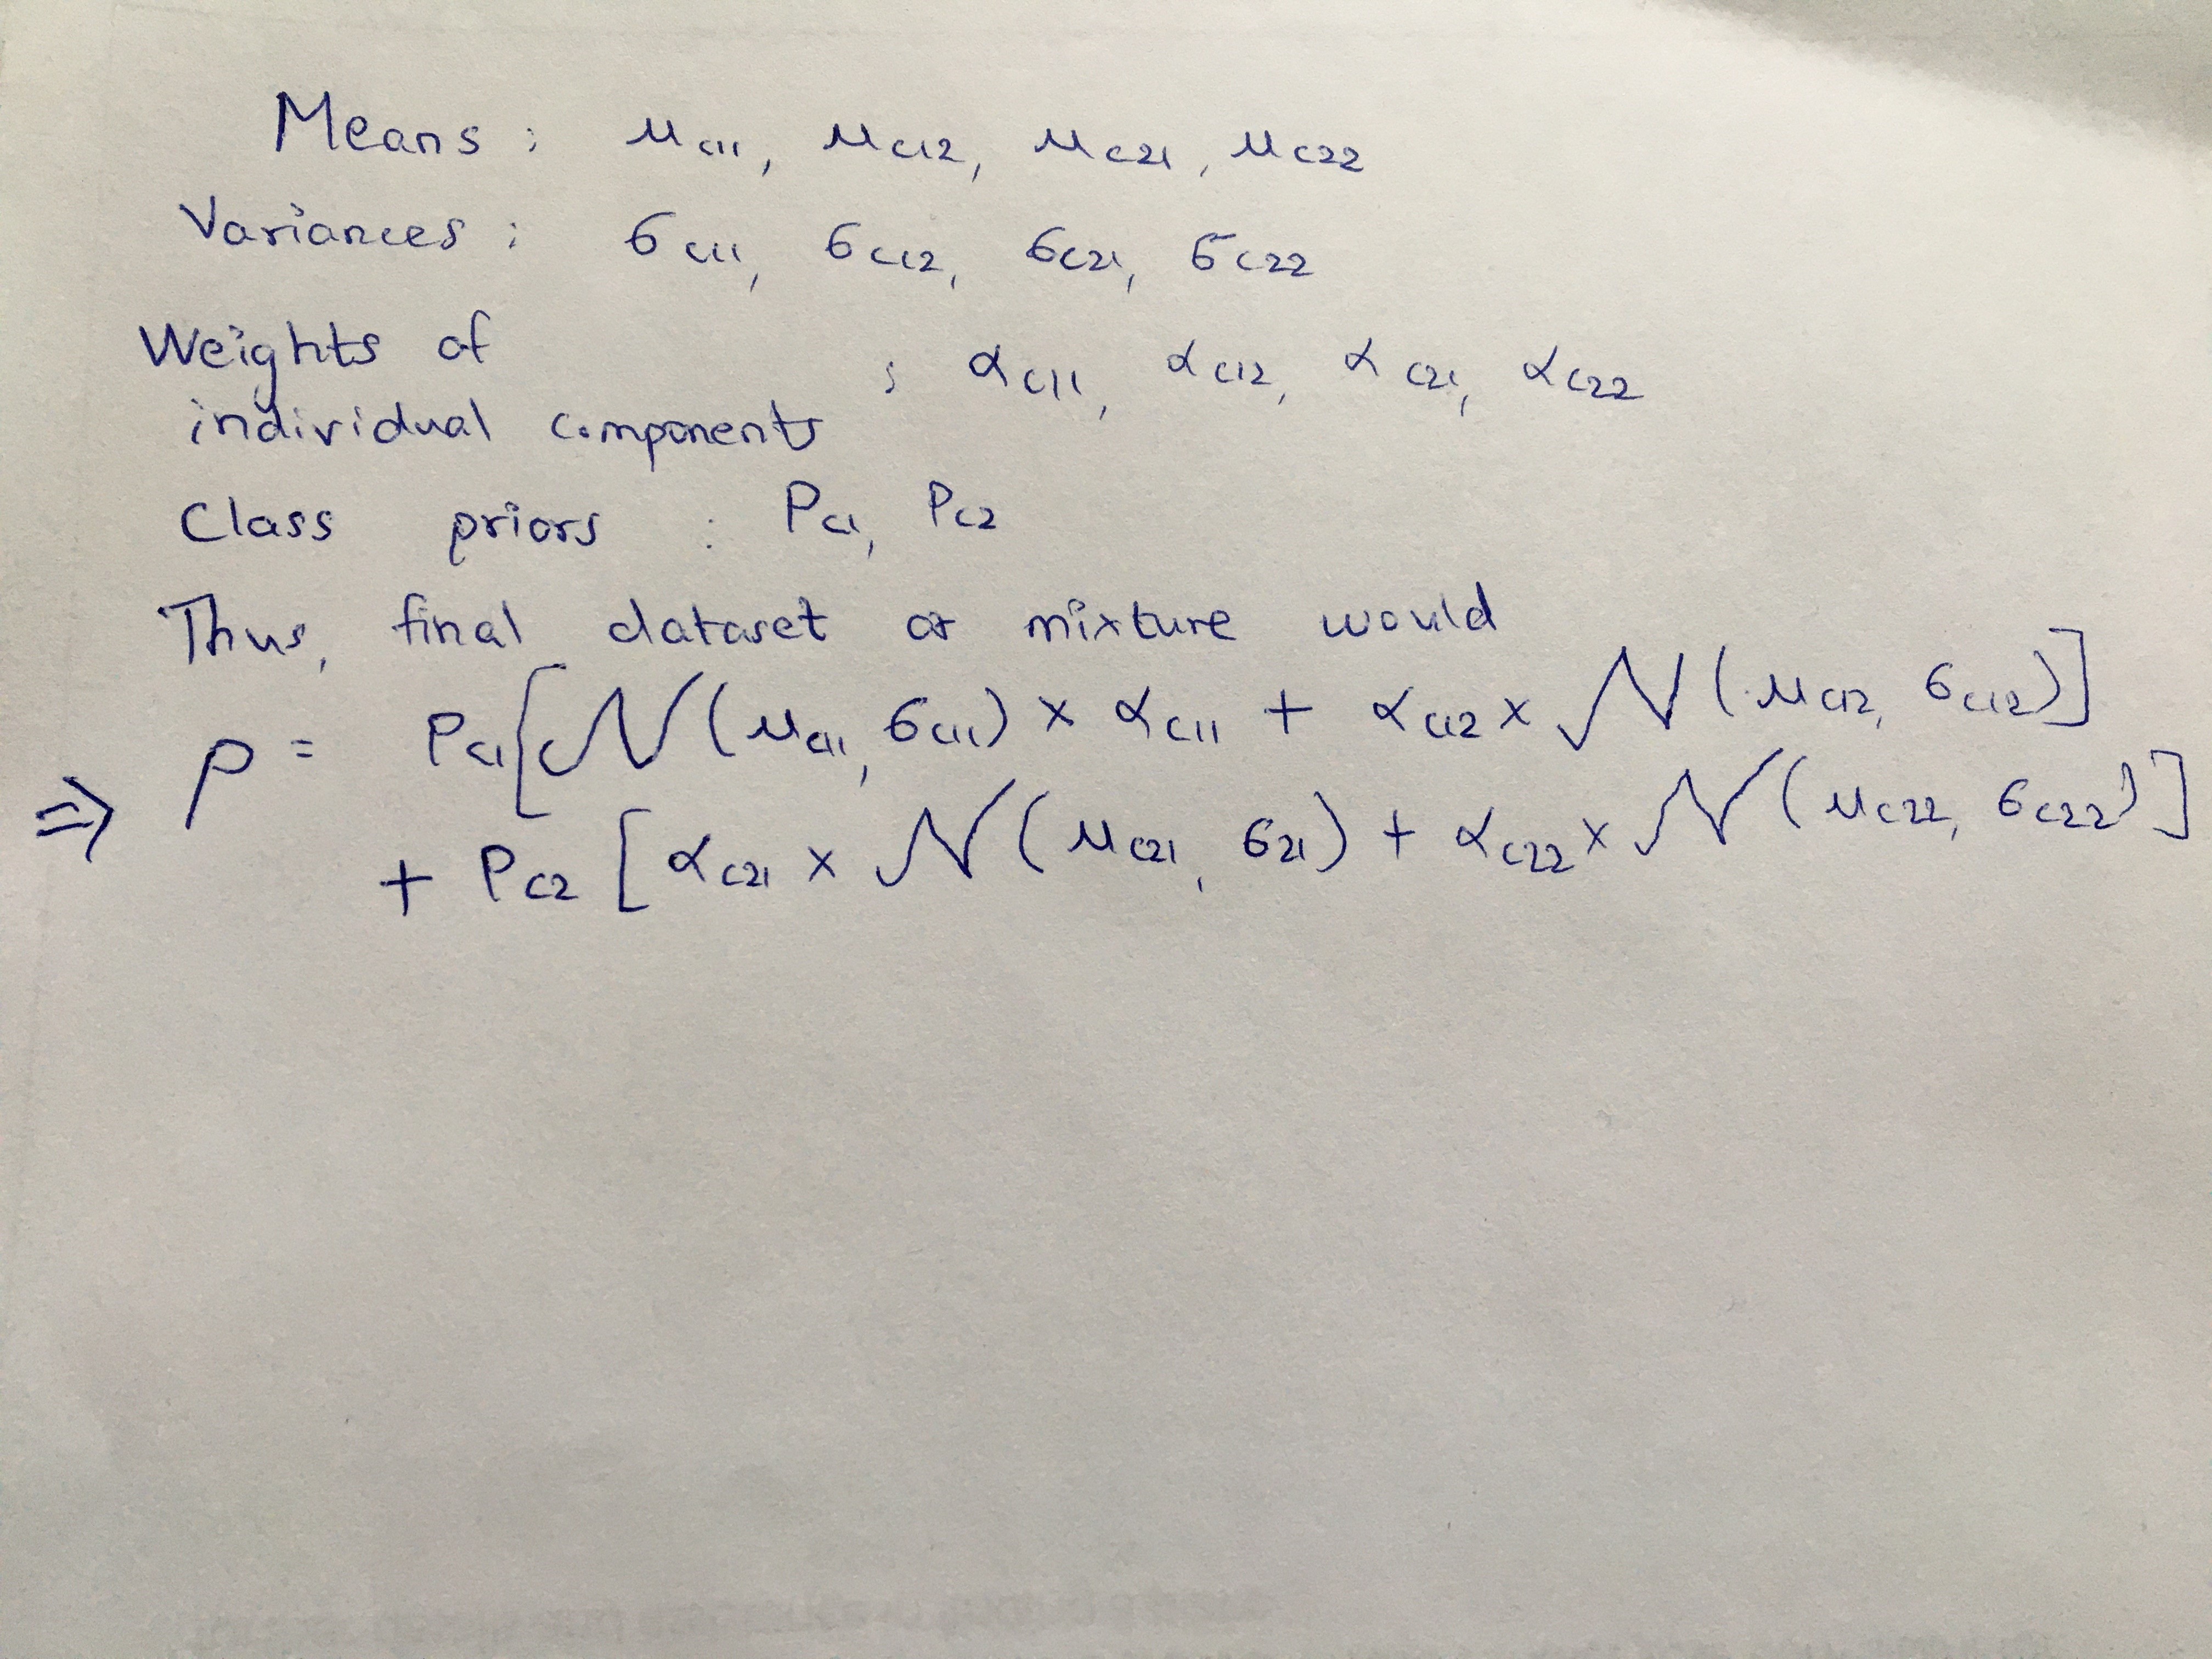 Means : μc11, μc12, μc21, μc22
Variances : σc11, σc12, σc21, σc22
Weights of
individual components : αc11, αc12, αc21, αc22
Class priors : Pc1, Pc2
Thus, final dataset or mixture would
⇒ P = Pc1[N(μc11, σc11) × αc11 + αc12 × N(μc12, σc12)]
+ Pc2 [αc21 × N(μc21, σ21) + αc22 × N(μc22, σc22)]